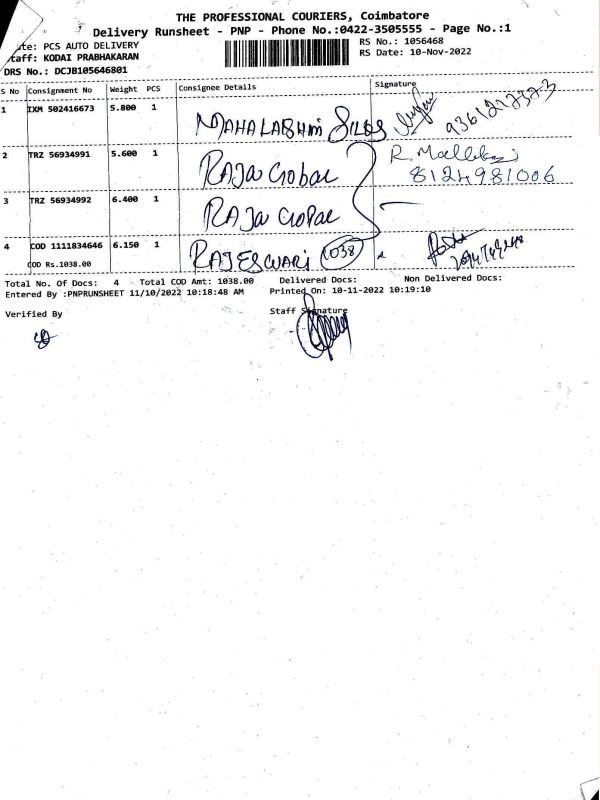 THE PROFESSIONAL COURIERS, Coimbatore
Delivery Runsheet - PNP - Phone No.:0422-3505555 - Page No.:1
PCS AUTO DELIVERY
RS No.: 1056468
KODAI PRABHAKARAN
RS Date: 10-Nov-2022
DRS No.: DCJB105646801
S No Consignment No Weight PCS Consignee Details Signature
1 IXM 502416673 5.800 1 MAHALAKSHMI SILKS
2 TRZ 56934991 5.600 1 RAJa Gobal
8124981006
3 TRZ 56934992 6.400 1 RAJa GOPal
4 COD 1111834646 6.150 1 RAJESWARi 1038
COD Rs.1038.00
Total No. Of Docs: 4 Total COD Amt: 1038.00 Delivered Docs: Non Delivered Docs:
Entered By :PNPRUNSHEET 11/10/2022 10:18:48 AM Printed On: 10-11-2022 10:19:10
Verified By Staff Signature